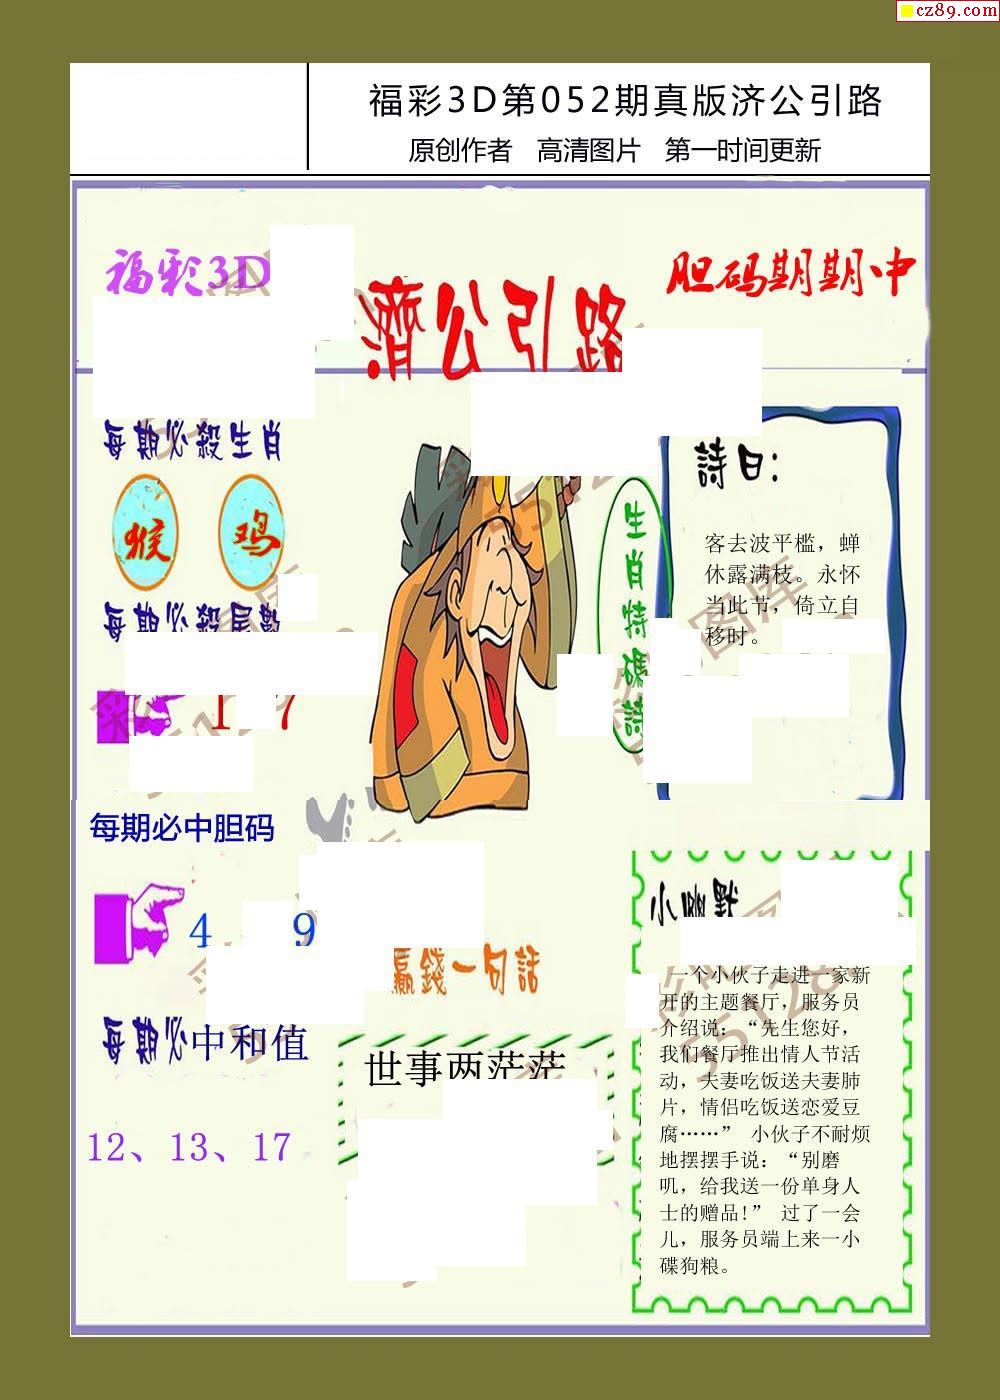 cz89.com
福彩3D第052期真版济公引路
原创作者 高清图片 第一时间更新
福彩3D
濟公引路
胆码期期中
每期必殺生肖
猴 鸡
每期必殺尾數
1 7
生肖特碼詩
詩曰：
客去波平槛，蝉
休露满枝。永怀
当此节，倚立自
移时。
每期必中胆码
4 9
每期必中和值
12、13、17
贏錢一句話
世事两茫茫
小幽默
一个小伙子走进一家新
开的主题餐厅，服务员
介绍说：“先生您好，
我们餐厅推出情人节活
动，夫妻吃饭送夫妻肺
片，情侣吃饭送恋爱豆
腐……” 小伙子不耐烦
地摆摆手说：“别磨
叽，给我送一份单身人
士的赠品!” 过了一会
儿，服务员端上来一小
碟狗粮。